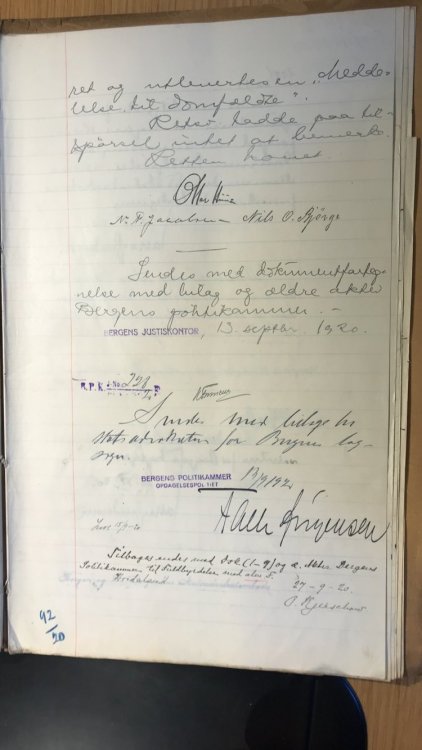 ret og utleverdes en „Medde-
lelse til domfældte”.
Retsv. hadde paa til-
spörsel intet at bemerke.
Retten hævet.
N. F. Jacobsen Nils O. Bjørge
Sendes med dokumentforteg-
nelse med bilag og ældre akter
Bergens politikammer. –
BERGENS JUSTISKONTOR, 13 septbr. 1920.
B. P. K. J. No. 728
Sendes med bilage til
Statsadvokaten for Bergens lag-
sogn
BERGENS POLITIKAMMER 13/9 1920
OPDAGELSESPOLITIET
Jørgensen
15/9-20
Tilbagesendes med dok (1-9) og æ. Akter Bergens
Politikammer til Fuldbyrdelse med
Hordaland 27-9-20.
92
20